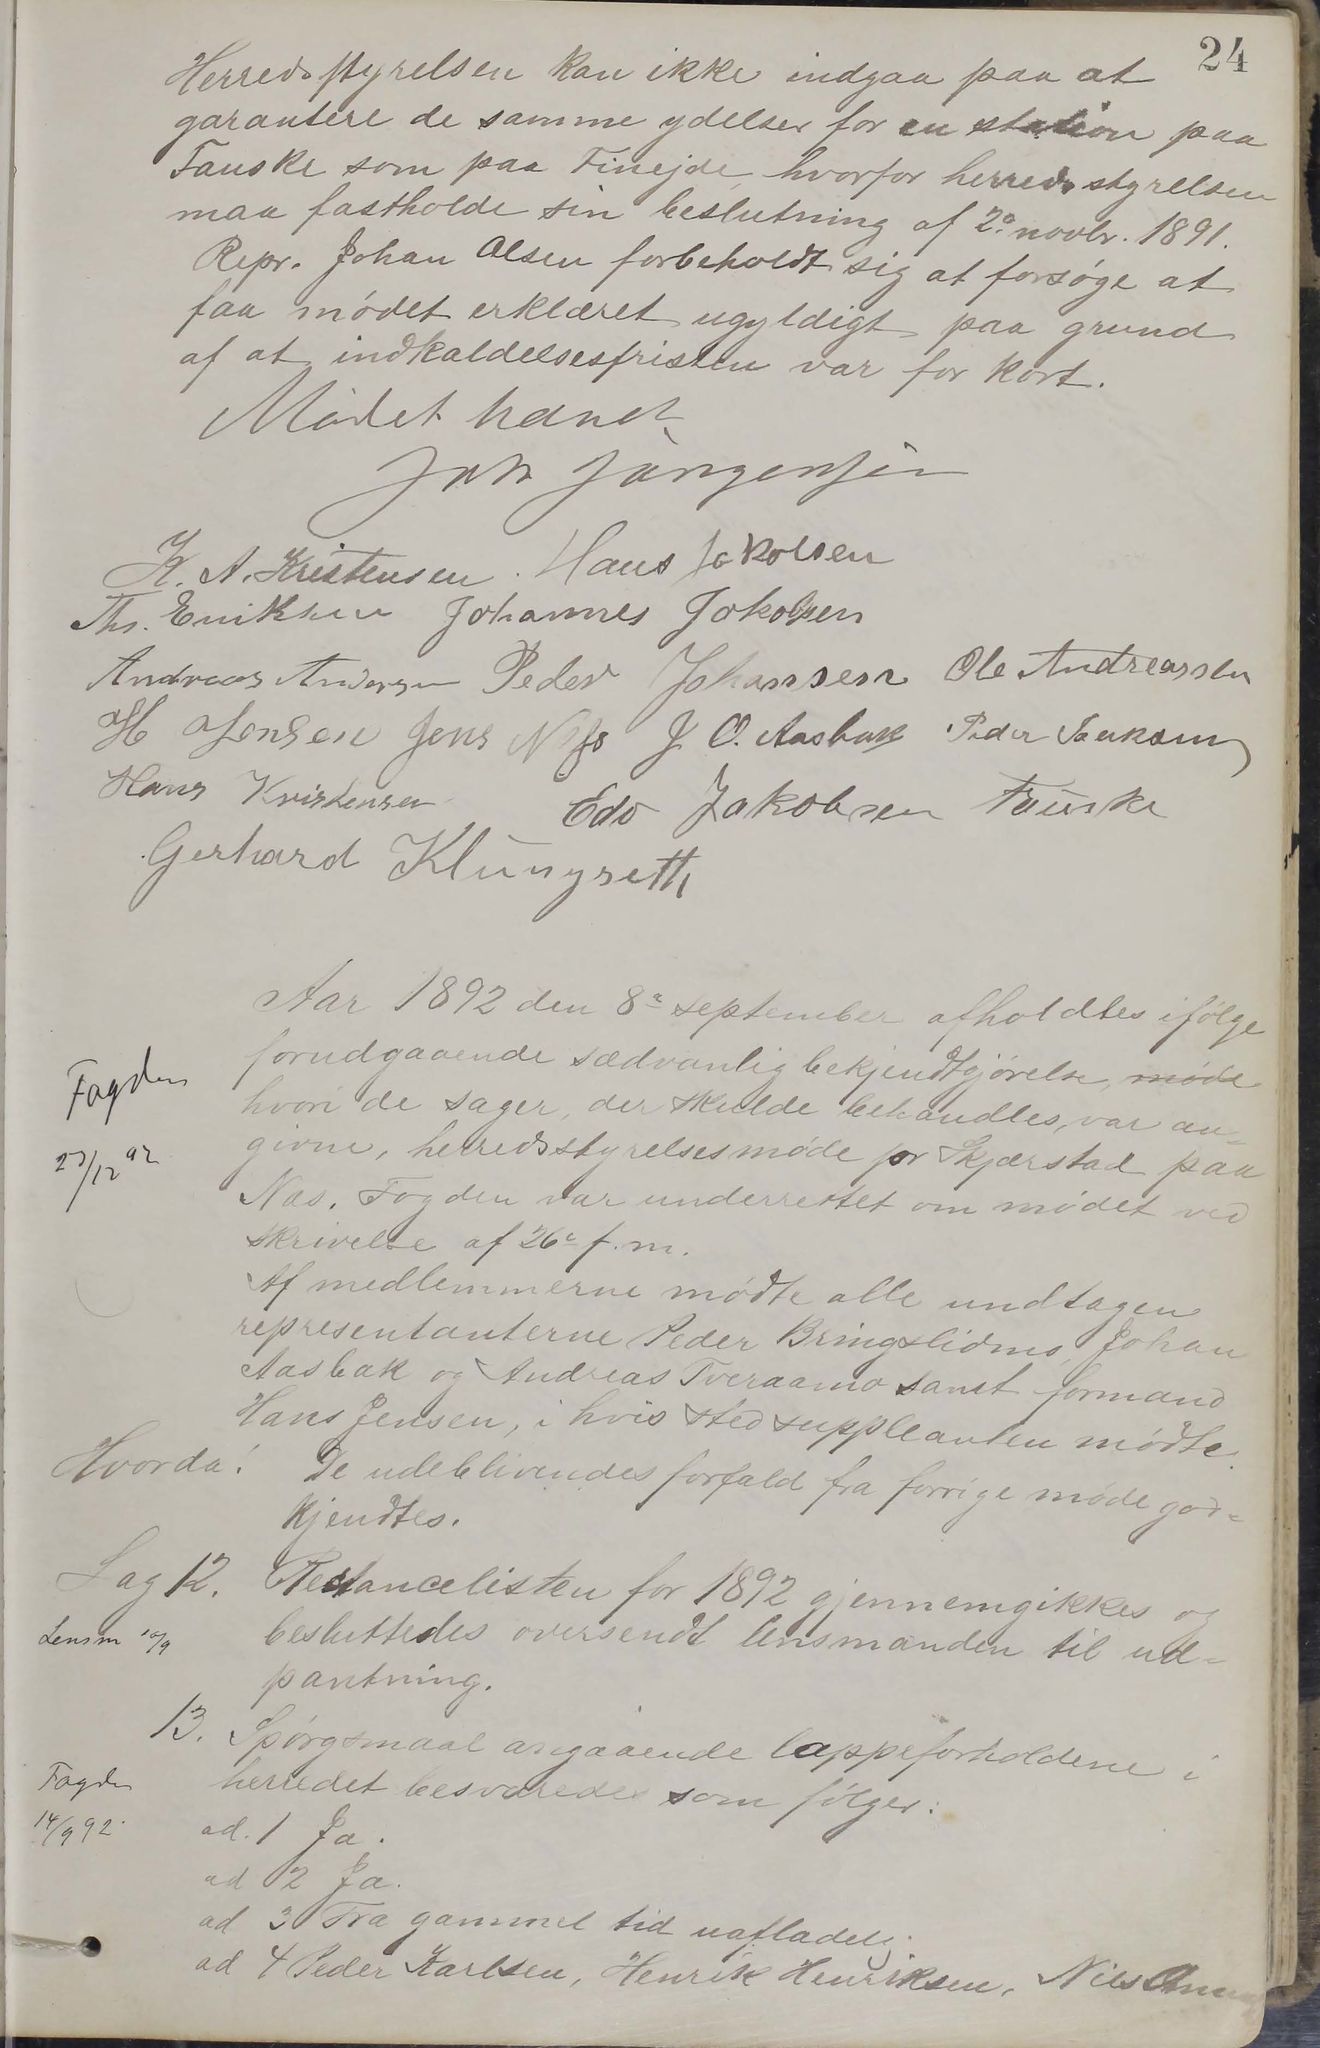 24
Herredsstyrelsen kan ikke indgaa paa at
garantere de samme ydelser for en station paa
Fauske som paa Finejde, hvorfor herredsstyrelsen
maa fastholde sin beslutning af 2⁰ novbr. 1891.
Repr. Johan Olsen forbeholdt sig at forsøge at
faa mødet erklæret ugyldigt paa grund
af at indkaldelsesfristen var for kort.
Mødet hævet
Joh Jørgensen
K. A. Kristensen. Hans Jakobsen
Ths. Eriksen Johannes Jakobsen
Andreas Andersen Peder Johansen Ole Andreassen
H Jensen Jens J. O. Aasbak Peder
Hans Kristensen Edv Jakobsen Fauske
Gerhard Klungseth
Aar 1892 den 8ᵈᵉ september afholdtes ifølge
forudgaaende sædvanlig bekjendtgjørelse, møde
hvori de sager, der skulde behandles, var an-
givne, herredsstyrelsesmøde for Skjerstad paa
Næs. Fogden var underrettet om mødet ved
skrivelse af 26ᵈᵉ f.m.
Fogden
23/12 92
Af medlemmerne mødte alle undtagen
representanterne Peder Bringslidmo, Johan
Aasbak og Andreas Tveraamo samt formand
Hans Jensen, i hvis sted suppleanten mødte.
Hvorda! De udeblivendes forfald fra forrige møde god-
kjendtes.
Sag 12. Restancelisten for 1892 gjennemgikkes og
besluttedes oversendt lensmanden til ud-
pantning.
Lensm 10/9
13. Spørgsmaal angaaende lappeforholdene i
herredet besvaredes som følger:
Fogden
14/9 92.
ad. 1 Ja.
ad 2 Ja.
ad 3 Fra gammel tid uafladelig.
ad 4 Peder Karlsen, Henrik Henriksen, Nils